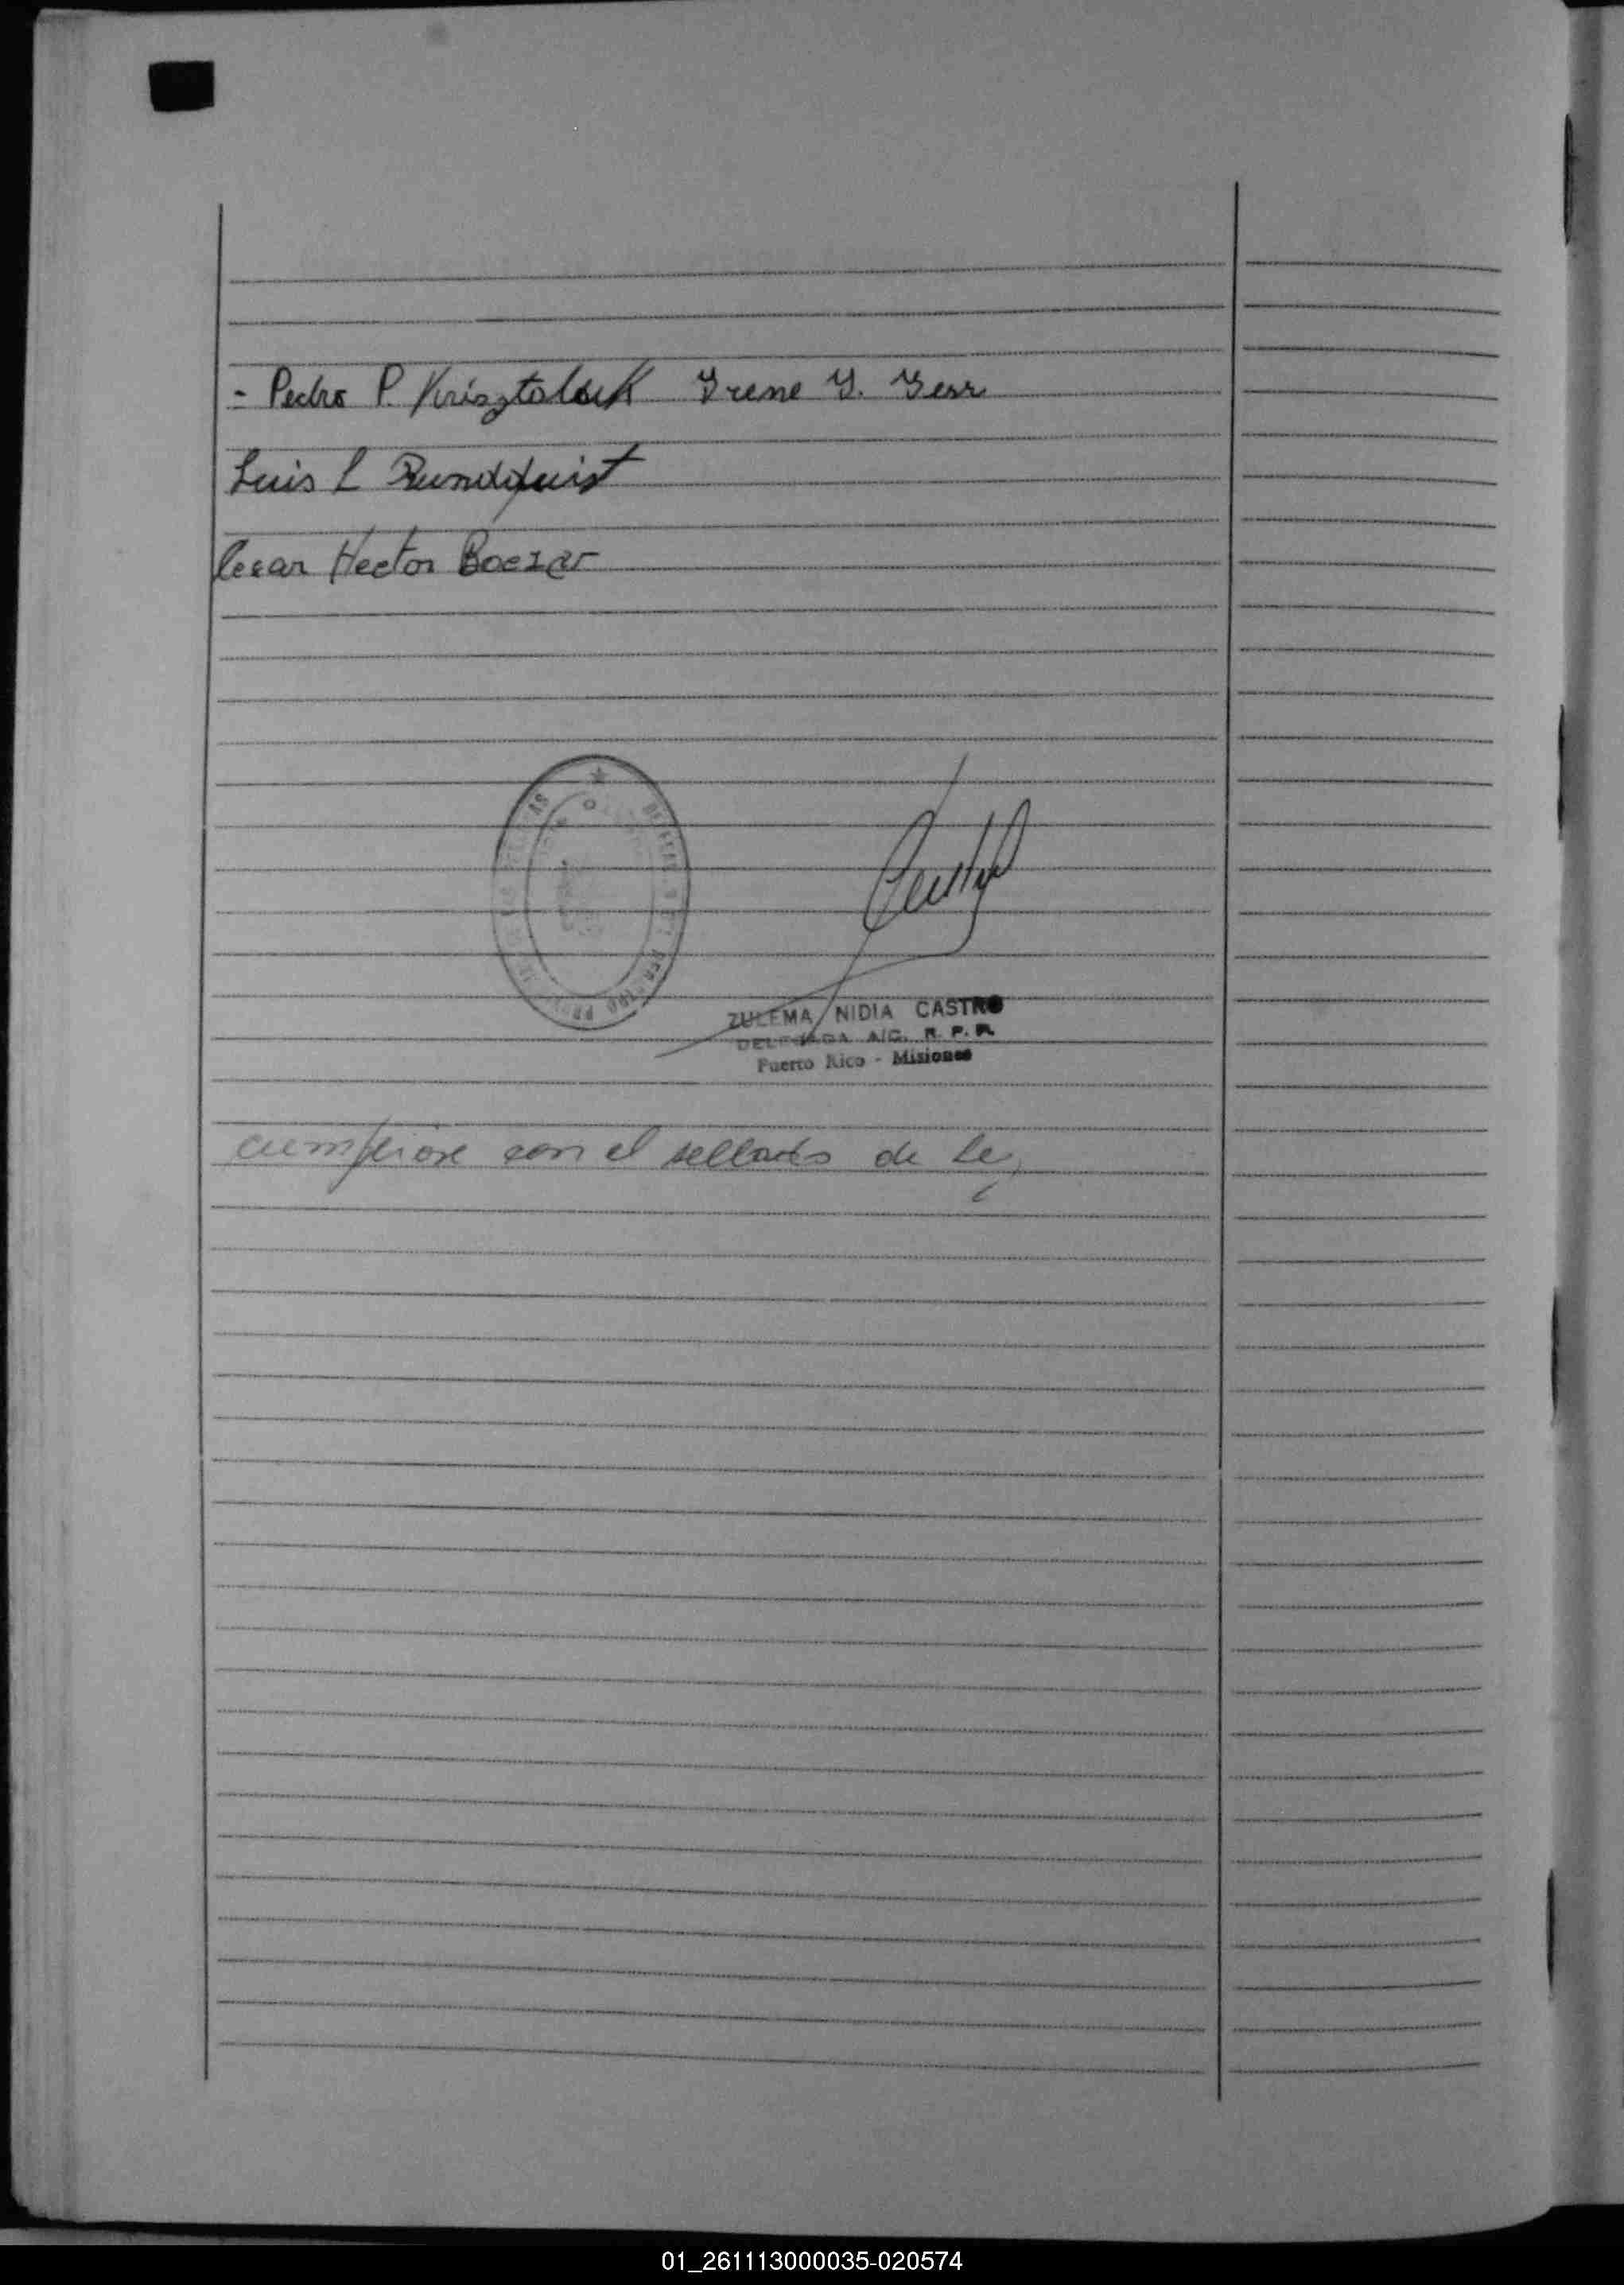 - Pedro P. Krisztalouk Irene Y. Yerr
Luis L Rundquist
Cesar Hector Boezar
ZULEMA NIDIA CASTRO
DELEGADA A/C. R. P. P.
Puerto Rico - Misiones
cumpliose con el sellado de ley
01_261113000035-020574